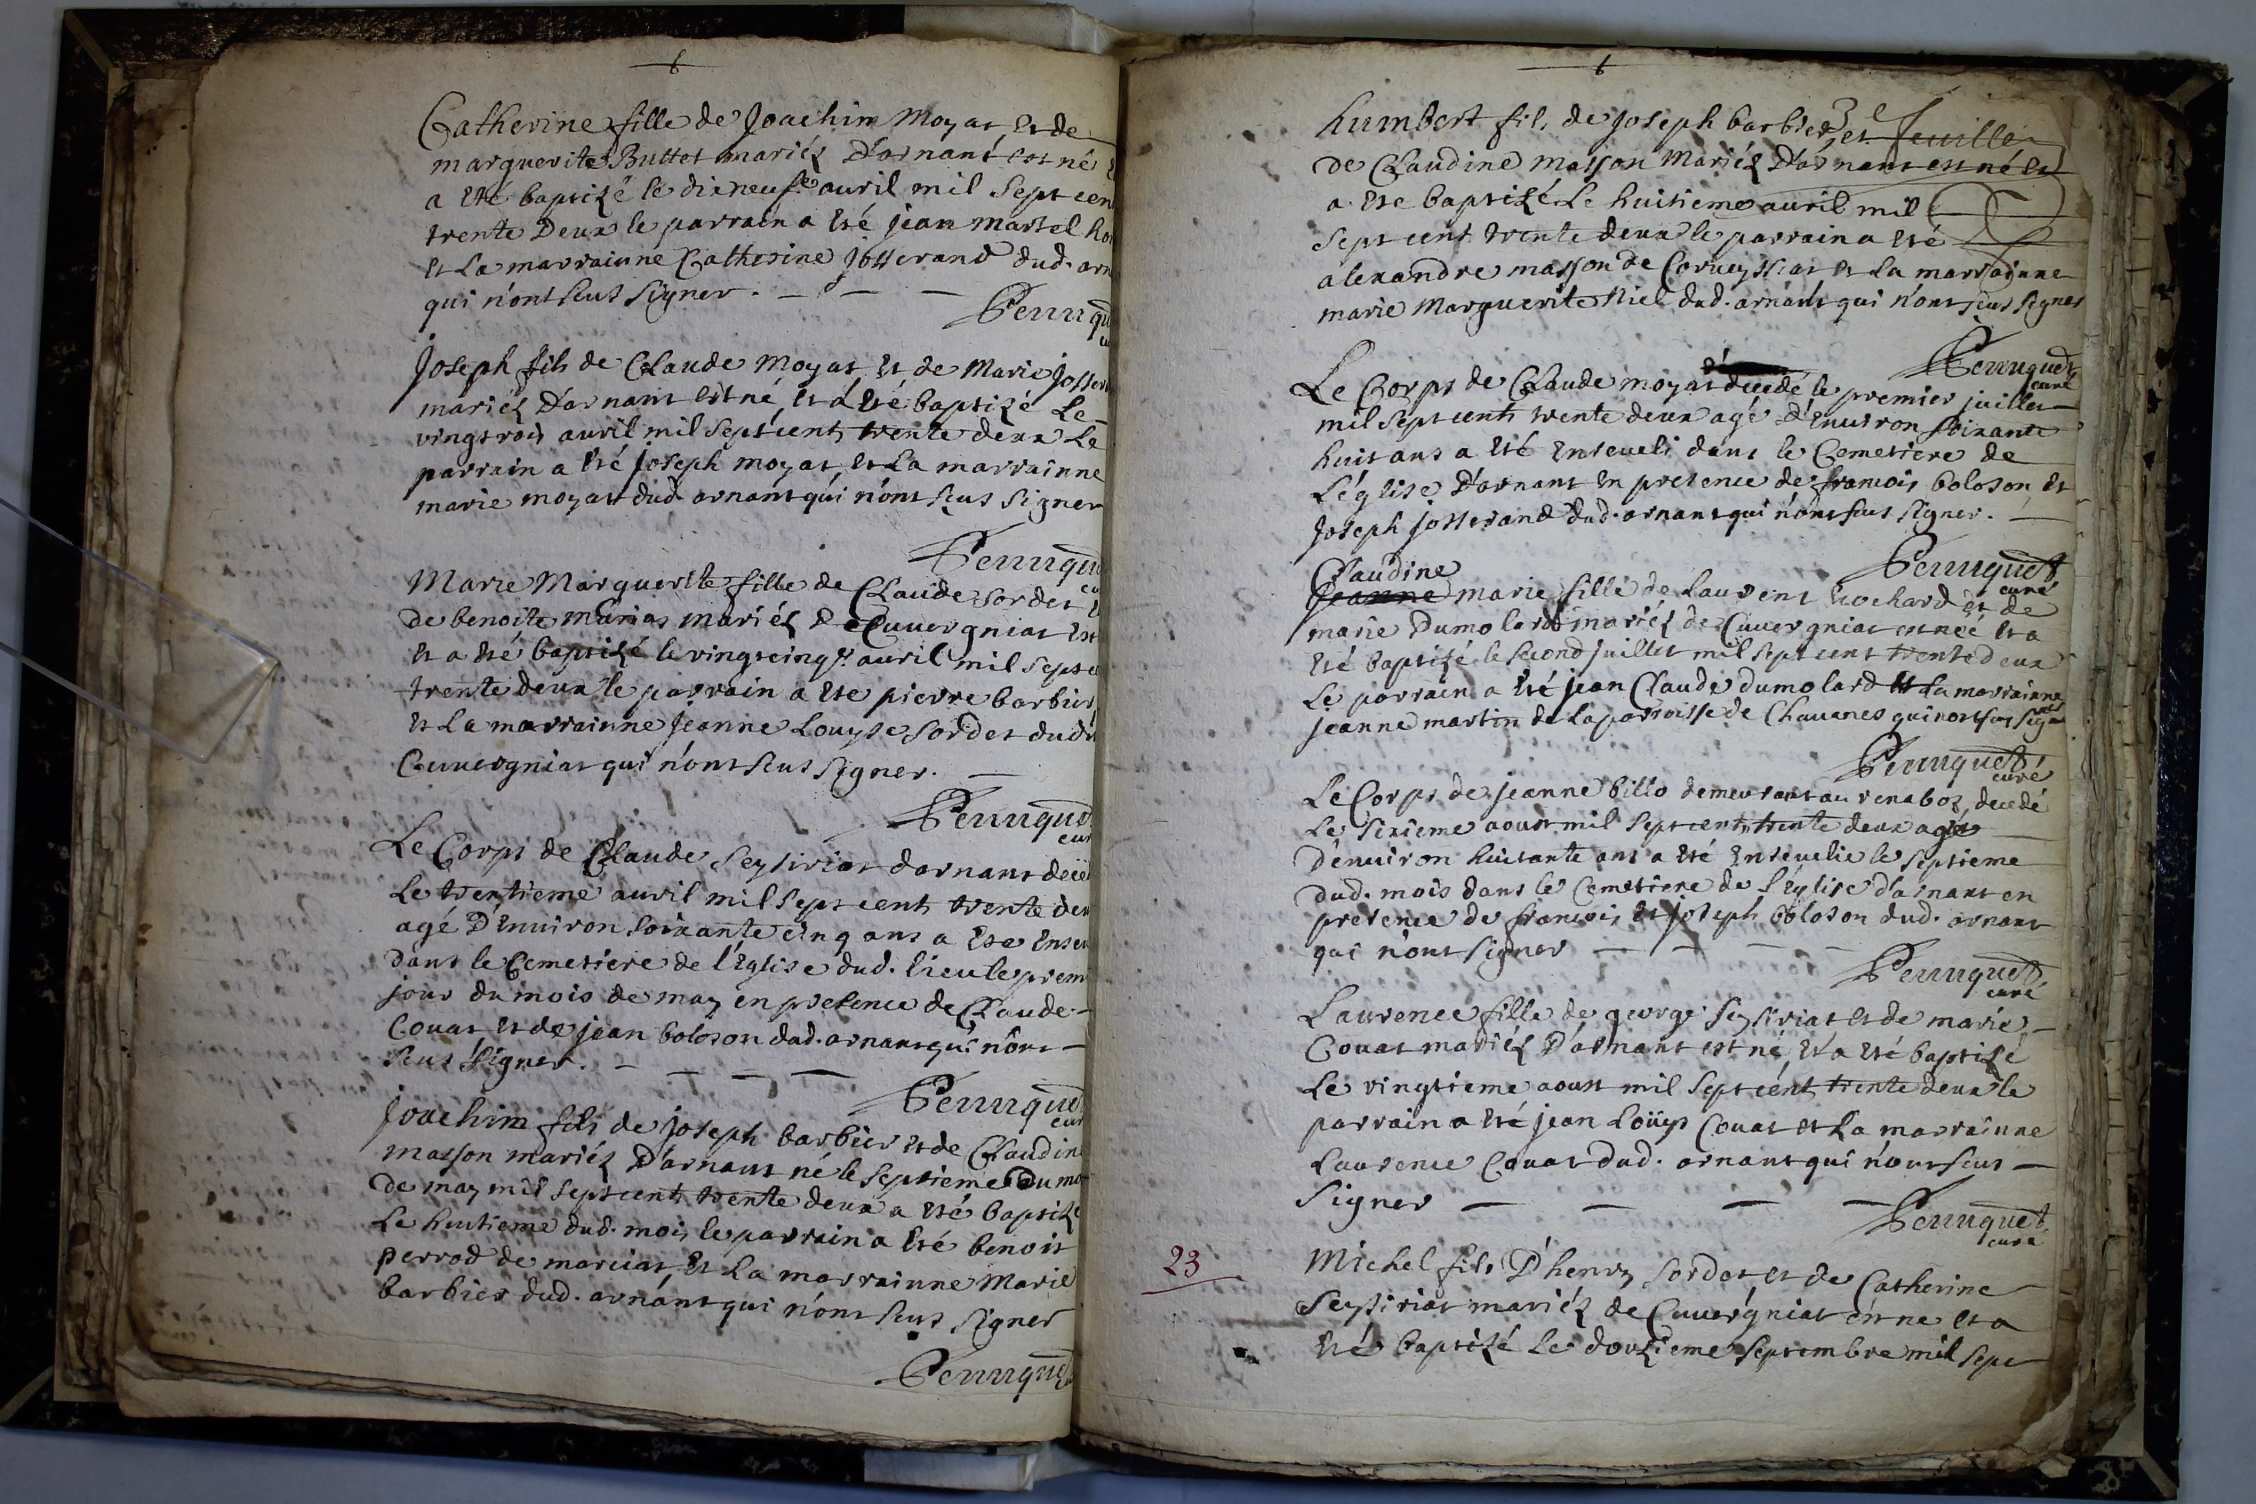 Catherine fille de Joachim Moyat, et de
marguerite Buttet mariéz D'arnant est né
a eté baptizé le dixneufe auril mil sept cen
trente Deux le parrain a eté jean martel
et La marrainne Catherine josserand dud. arn
qui n'ont seus signer.
Perruqu
Joseph fils de Claude Moyat et de Marie Josser
mariéz D'arnant est né et a eté baptizé Le
vingtrois auril mil sept cent trente deux Le
parrain a eté joseph moyat, et La marrainne
marie moyat dud. arnant qui n'ont seus signer
Perruqu
cu
Marie Marguerite fille de Claude sordet
de benoite mariéz de Cuuergniat est
et a eté baptizé le vingtcinq auril mil sept c
trente deux le parrain a ete pierre barbier
et La marrainne jeanne Louyse sordet dud
Cuuergniat qui n'ont seus signer.
Perruque
cur
Le Corps de Claude seysiriat d'arnant décé
Le trentieme auril mil sept cent trente deu
agé D'enuiron soixante cinq ans a ete enseu
dans le Cemetiere de l'Eglise dud. lieu le prem
jour du mois de may en presence de Claude
Couat et de jean boloson dud. arnant qui n'ont
seus signer.
Perruque
cur
Joachim fils de joseph barbier et de Claudin
masson mariéz D'arnant né le septieme Du mo
de may mil sept cent trente deux a eté baptizé
Le huitieme dud. mois le parrain a eté benoit
perrod de marciat et La marrainne Marie
barbier dud. arnant qui n'ont seus signer
Perruque
3e feuille
humbert fils de joseph barbier et
de Claudine masson Mariéz D'arnant est né et
a ete baptizé Le huitieme auril mil
sept cent trente deux le parrain a eté
alexandre masson de Corueyssiat et La marrainne
marie Marguerite Niel dud. arnant qui n'ont seus signer
Perruquet
curé
Le Corps de Claude moyat décedé le premier juillet
mil sept cent trente deux agé D'enuiron soixante
huit ans a eté enseueli dans le Cemetiere de
L'église D'arnant en presence de francois boloson et
Joseph josserand dud. arnant qui n'ont seus signer.
Perruquet
curé
Claudine
Jeanne marie fille de Laurent Rochard et de
marie Dumolard mariéz de Cuuergniat est néé et a
eté baptizé le second juillet mil sept cent trente deux
Le parrain a eté jean Claude dumolard et La marrainne
jeanne martin de La parroisse de Chauanes qui n'ont seus signer
Perruquet
curé
Le Corps de jeanne billo demeurant au decedé
Le sixieme aoust mil sept cent trente deux agée
D'enuiron huitante ans a eté enseuelie le septieme
dud. mois dans le Cemetiere de l'église d'arnant en
presence de francois et joseph boloson dud. arnant
qui n'ont signer
Perruquet
curé
Laurence fille de george seysiriat et de marie
Couat mariéz D'arnant est né, et a eté baptizé
Le vingtieme aoust mil sept cent trente deux le
parrain a eté jean Loüys Couat et La marrainne
Laurence Couat dud. arnant qui n'ont seus
signer
Perruquet
curé
23
Michel fils D'henry sordet et de Catherine
seysiriat mariéz de Cuuergniat est ne et a
eté baptizé Le douzieme septembre mil sept